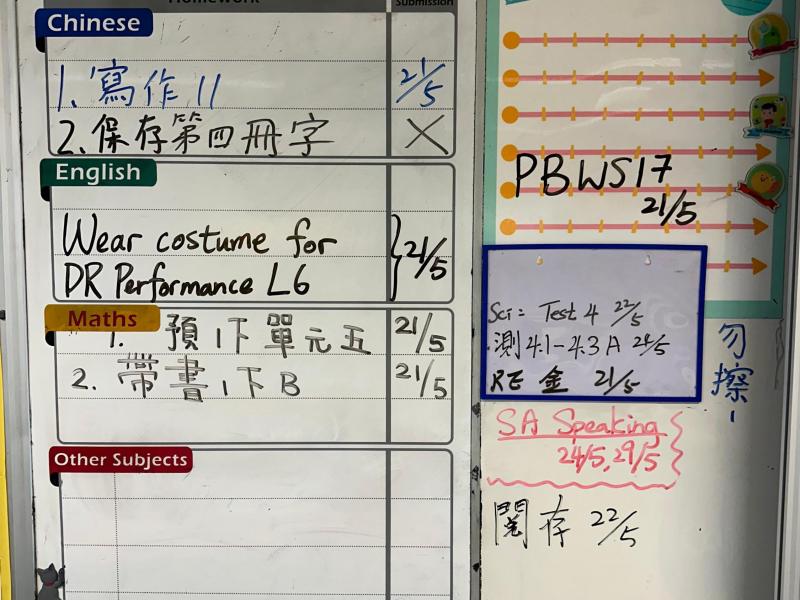 Homework
Submission
Chinese
1. 寫作11 21/5
2. 保存第四冊字 X
English
Wear costume for
DR Performance L6 } 21/5
Maths
1. 預1下單元五 21/5
2. 帶書1下B 21/5
Other Subjects
PBWS17
21/5
Sci: Test 4 22/5
測4.1-4.3A 24/5
RE 金 21/5
勿擦
SA Speaking
24/5, 29/5
閱存 22/5